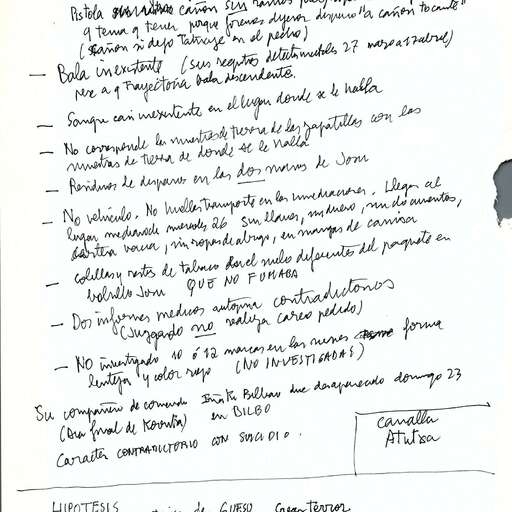 Pistola cañón sin
q tema q tener porque forenses dijeron disparo "a cañón tocante"
(cañón si dejo Tatuaje en el pecho)
— Bala inexistente (sus registros detectometales 27 marzo a 17 abril)
pese a q trayectoria bala descendente.
— Sangre casi inexistente en el lugar donde se le halla
— No corresponde las muestras de tierra de las zapatillas con las
muestras de tierra de donde se le halla
— Residuos de disparos en las dos manos de Josu
— No vehículo. No huellas transporte en las inmediaciones. Llegar al
lugar mediando miércoles 26 sin llaves, ni dinero, sin documentos,
cartera vacía, sin ropas de abrigo, en mangas de camisa
— colillas y restos de tabaco en el suelo diferentes del paquete en
bolsillo Josu QUE NO FUMABA
— Dos informes médicos autopsia contradictorios
(Juzgado no realiza careo pedido)
— NO investigado 10 ó 12 marcas en las forma
lenteja y color rojo (NO INVESTIGADAS)
Su compañero de comando Iñaki Bilbao dice desaparecido domingo 23
(Dia final de Korrika) en BILBO
Carácter CONTRADICTORIO CON SUICIDIO.
canalla
Atutxa
HIPOTESIS de GUESO Crear terror